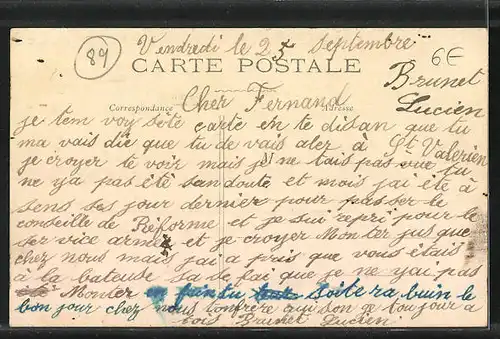 89
Vendredi le 25 septembre
6E
CARTE POSTALE
Brunet
Correspondance
Adresse
Cher Fernand
Lucien
je tem voy sete carte en te disan que tu
ma vais die que tu de vais alez à St Valerien
je croyer te voir mais je ne tais pas vue tu
ne ya pas été sandoute et mois jai été à
sens ses jour dernier pour passer le
conseille de Réforme et je sui repri pour le
ser vice armée et je croyer Monter jus que
chez nous mais jai a pris que vous étais
à la bateuse sa se fai que je ne yai pas
Monter pintu soite ra buin le
bon jour chez nous ton frere qui son ge toujour a
tois Brunet Lucien